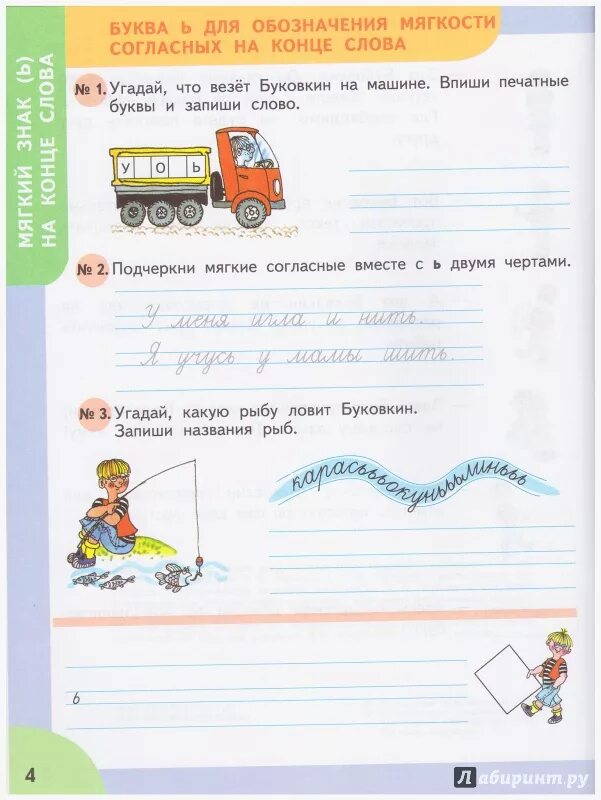 БУКВА Ь ДЛЯ ОБОЗНАЧЕНИЯ МЯГКОСТИ
СОГЛАСНЫХ НА КОНЦЕ СЛОВА
МЯГКИЙ ЗНАК (Ь)
НА КОНЦЕ СЛОВА
№ 1. Угадай, что везёт Буковкин на машине. Впиши печатные
буквы и запиши слово.
У О Ь
№ 2. Подчеркни мягкие согласные вместе с ь двумя чертами.
У меня игла и нить.
Я учусь у мамы шить.
№ 3. Угадай, какую рыбу ловит Буковкин.
Запиши названия рыб.
карасьььокуньььлиньььь
ь
4
Лабиринт.ру